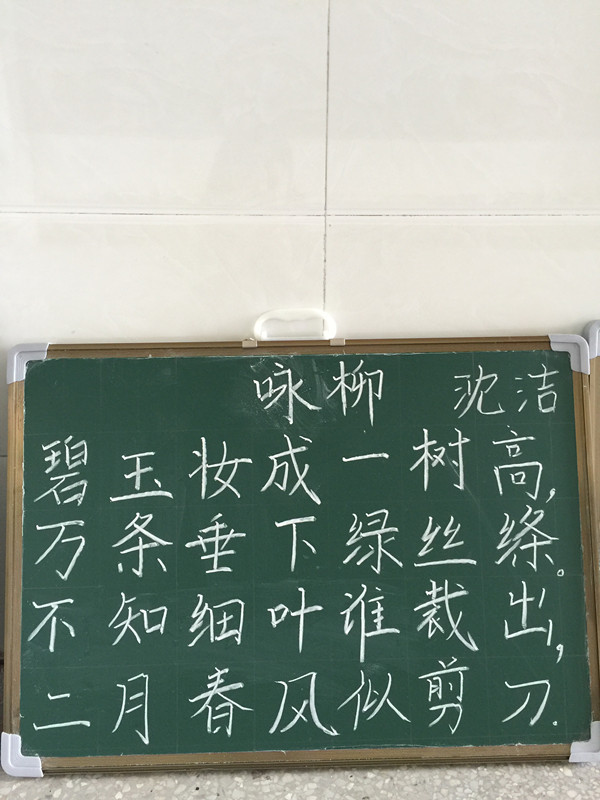 咏柳 沈洁
碧玉妆成一树高,
万条垂下绿丝绦。
不知细叶谁裁出,
二月春风似剪刀.